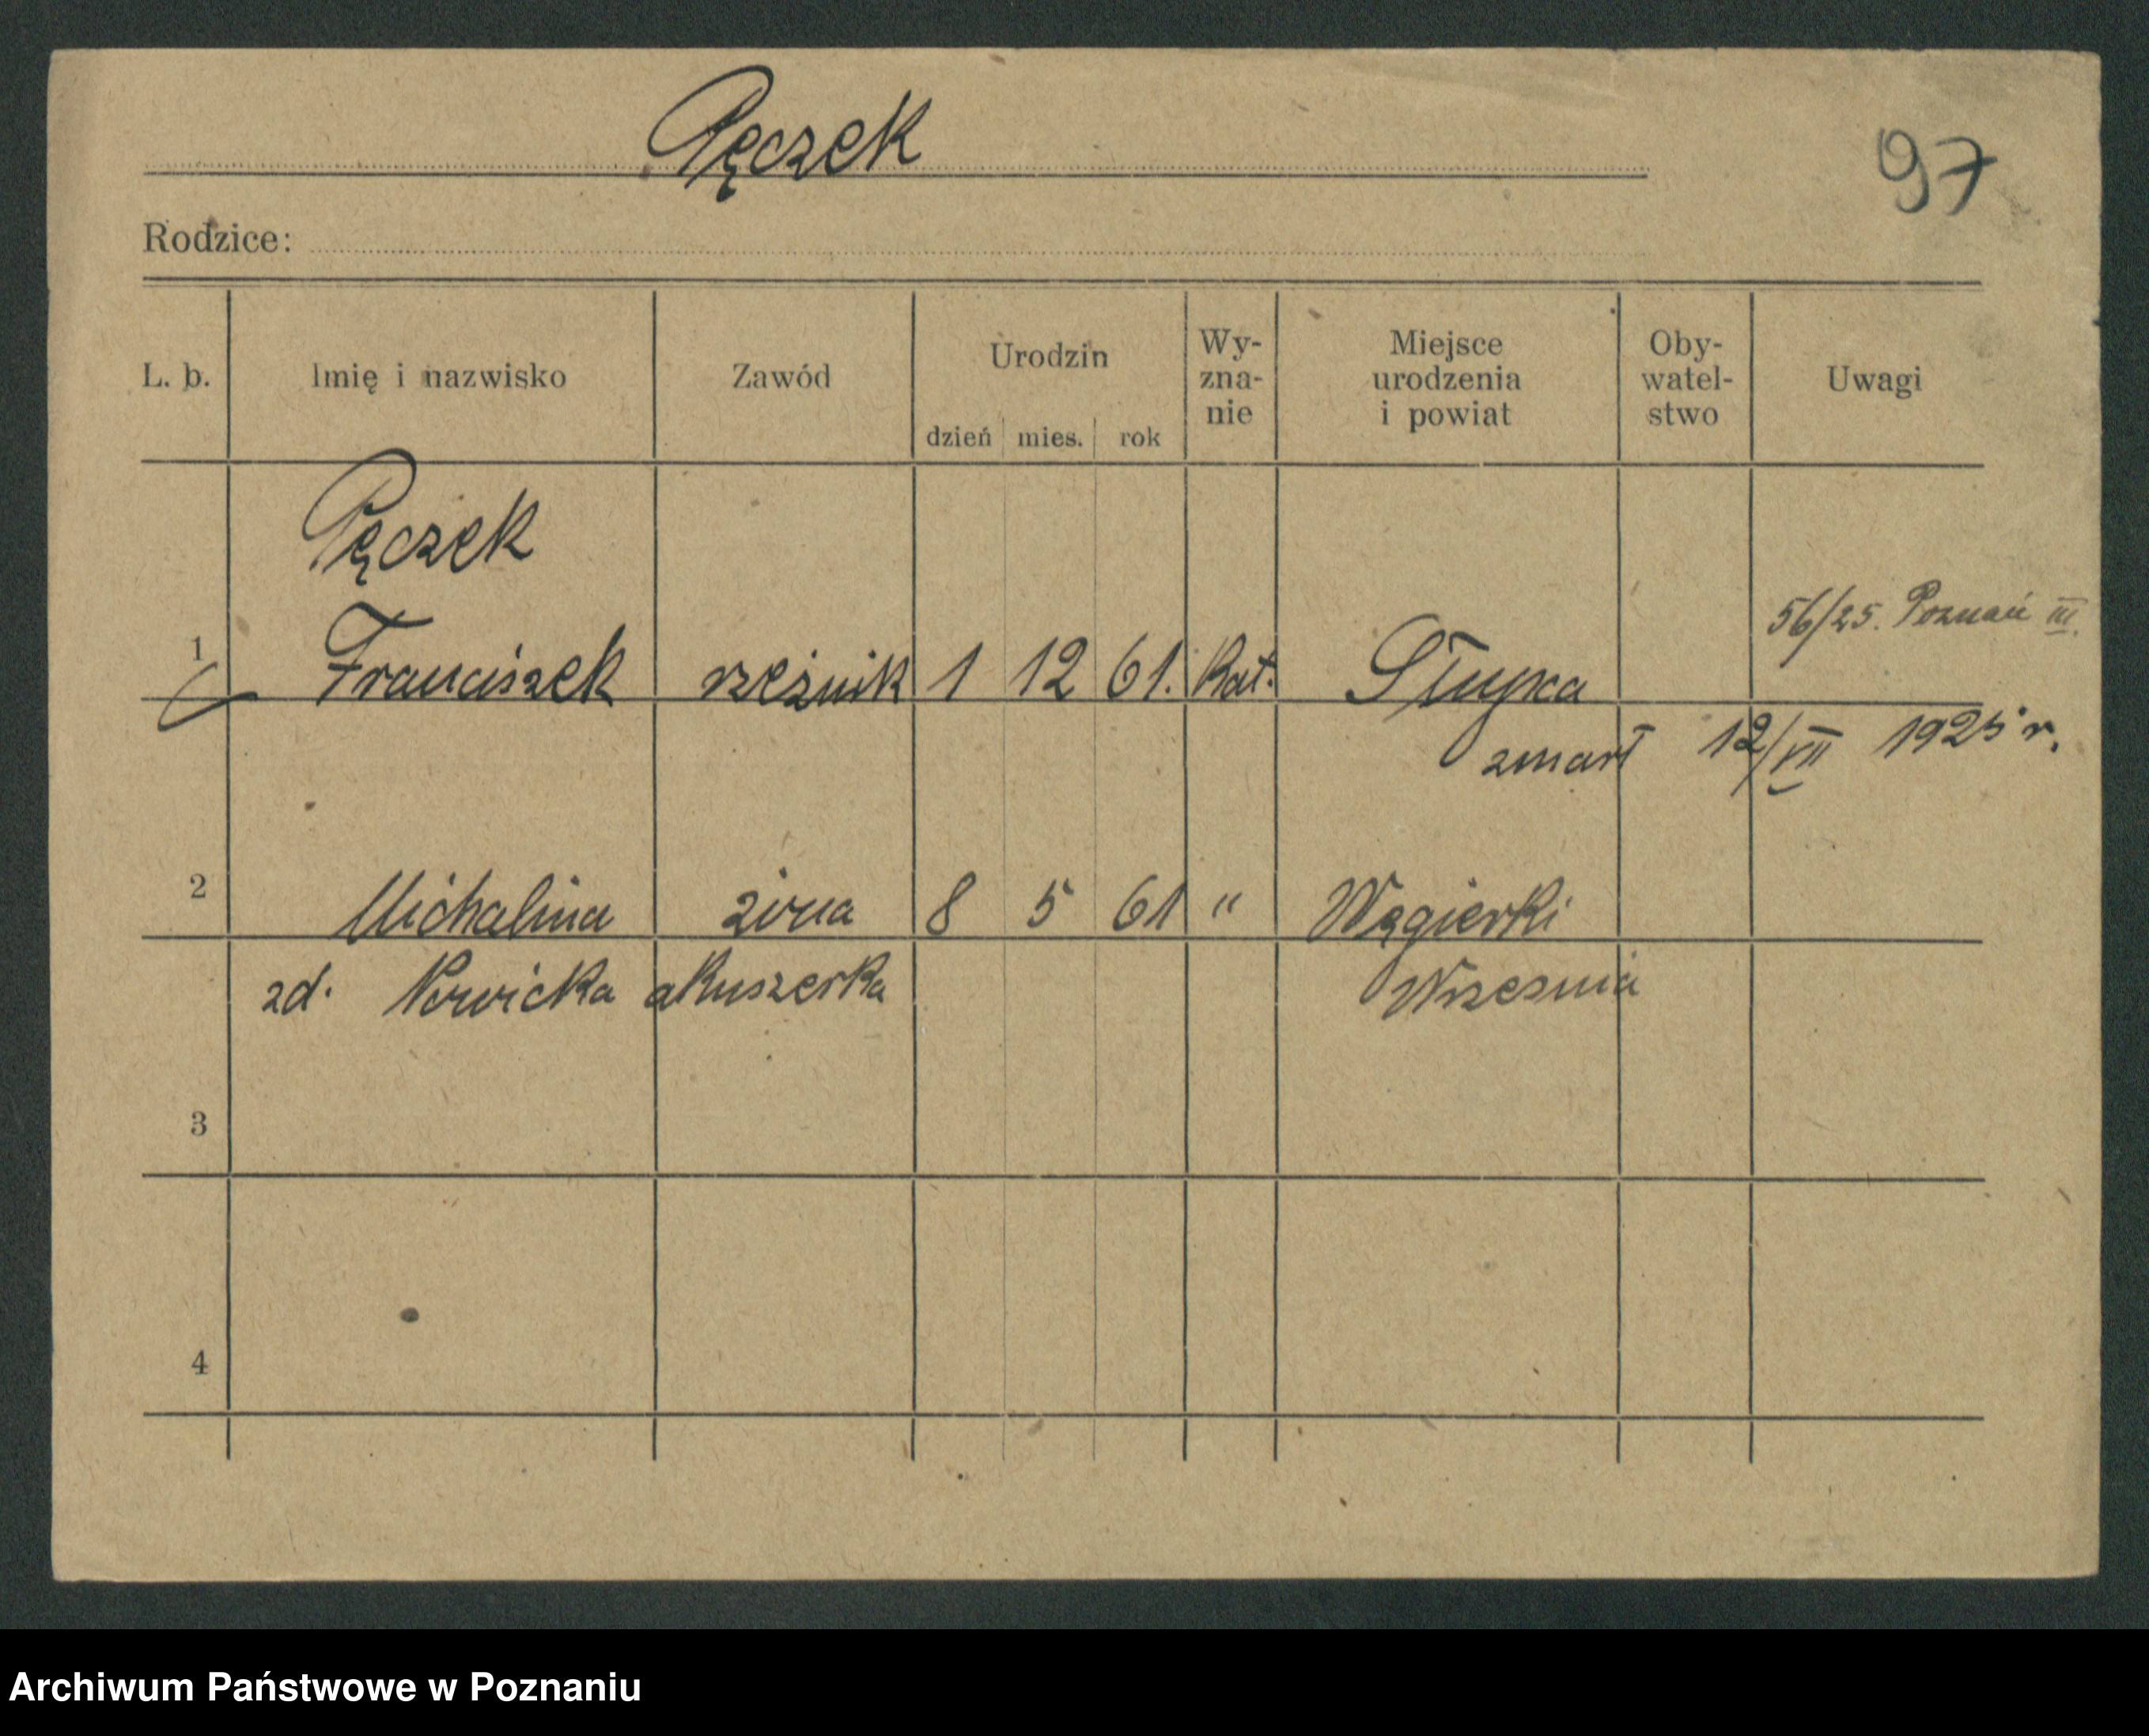 Pęczek
97
Rodzice:
L. b.
Imię i nazwisko
Zawód
Urodzin
dzień mies. rok
Wy-
zna-
nie
Miejsce
urodzenia
i powiat
Oby-
watel-
stwo
Uwagi
Pęczek
56/25. Poznań III.
1 Franciszek rzeźnik 1 12 61. Kat. Słupca
zmarł 12/VII 1925 r.
2 Michalina żona 8 5 61 " Węgierki
zd. Nowicka akuszerka Wrzesnia
3
4
Archiwum Państwowe w Poznaniu